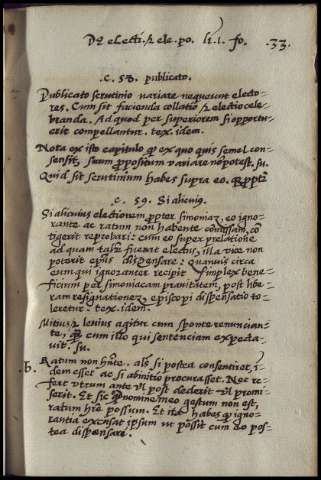 De electi. & ele. po. li. 1. fo. 33.
.c. 58. publicato.
Publicato scrutinio variare nequeunt electo-
res. Cum sit facienda collatio & electio cele-
branda. Ad quod per superiorem si oportu-
erit compellantur. tex. idem.
Nota ex isto capitulo quod ex quo quis semel con-
sensit, suum propositum variare non potest. su.
Quid sit scrutinium habes supra eo.
.c. 59. Si alicuius
Si alicuius electionem propter simoniam, eo igno-
rante ac ratum non habente comissam, co-
tigerit reprobari: cum eo super prelatione
ad quam taliter fuerat electus, illa vice non
poterit episcopus dispensare: Quamvis circa
eum qui ignoranter recipit simplex bene-
ficium per simoniacam pravitatem, post libe-
ram resignationem, episcopi dispensatio to-
leretur. tex. idem.
Mitius & lenius agitur cum sponte renuncian-
te, quam cum illo qui sentenciam expecta-
vit. su.
.b. Ratum non habente. als si postea consentiret, i-
dem esset ac si abinitio procurasset. Nec re-
fert utrum ante vel post dederit vel promi-
serit. Et sic quod nomine meo gestum non est,
ratum habere possum. Et ita habes quod igno-
rantia excusat ipsum ut possit cum eo pos-
tea dispensare.